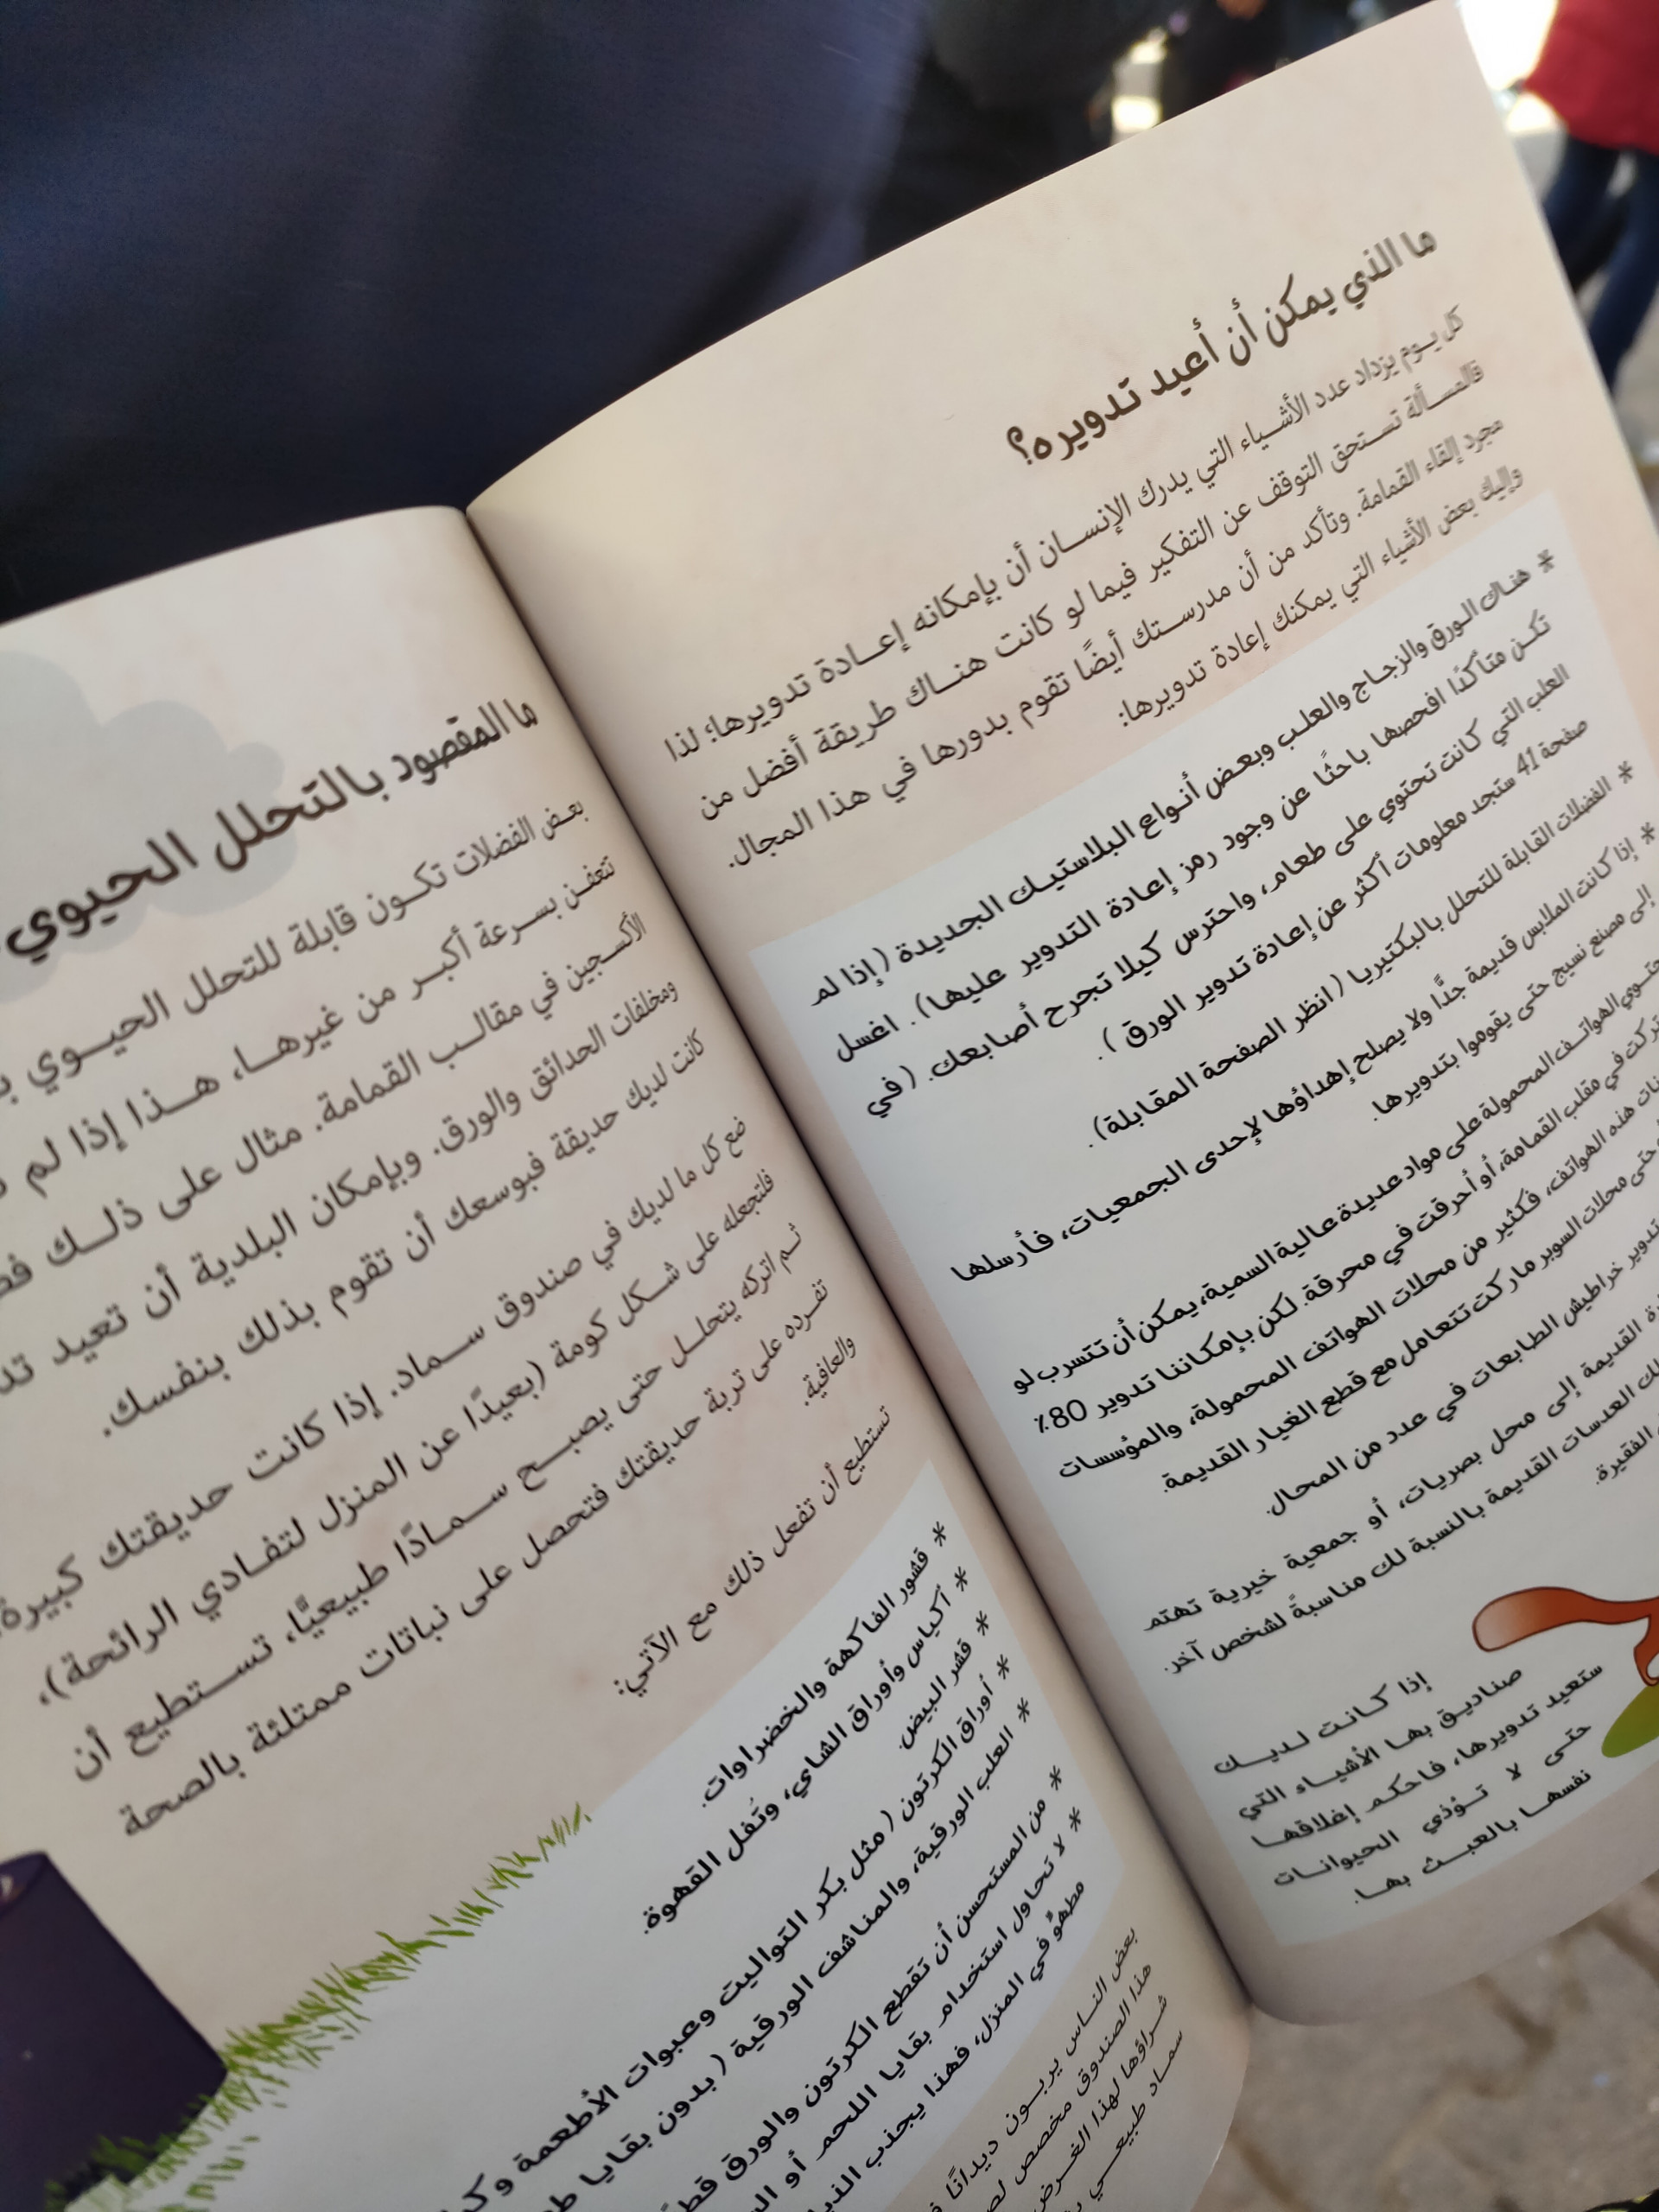 ما الذي يمكن أن أعيد تدويره؟
كل يوم يزداد عدد الأشياء التي يدرك الإنسان أن بإمكانه إعادة تدويرها؛ لذا
فالمسألة تستحق التوقف عن التفكير فيما لو كانت هناك طريقة أفضل من
مجرد إلقاء القمامة. وتأكد من أن مدرستك أيضًا تقوم بدورها في هذا المجال.
وإليك بعض الأشياء التي يمكنك إعادة تدويرها:
* هناك الورق والزجاج والعلب وبعض أنواع البلاستيك الجديدة (إذا لم
تكن متأكدًا افحصها باحثًا عن وجود رمز إعادة التدوير عليها). اغسل
العلب التي كانت تحتوي على طعام، واحترس كيلا تجرح أصابعك. (في
صفحة 41 ستجد معلومات أكثر عن إعادة تدوير الورق).
* الفضلات القابلة للتحلل بالبكتيريا (انظر الصفحة المقابلة).
* إذا كانت الملابس قديمة جدًّا ولا يصلح إهداؤها لإحدى الجمعيات، فأرسلها
إلى مصنع نسيج حتى يقوموا بتدويرها.
الهواتف المحمولة على مواد عديدة عالية السمية، يمكن أن تتسرب لو
تركت في مقلب القمامة، أو أحرقت في محرقة. لكن بإمكاننا تدوير 80٪
هذه الهواتف، فكثير من محلات الهواتف المحمولة، والمؤسسات
حتى محلات السوبر ماركت تتعامل مع قطع الغيار القديمة.
تدوير خراطيش الطابعات في عدد من المحال.
القديمة إلى محل بصريات، أو جمعية خيرية تهتم
العدسات القديمة بالنسبة لك مناسبةً لشخص آخر.
الفقيرة.
إذا كانت لديك
صناديق بها الأشياء التي
ستعيد تدويرها، فاحكم إغلاقها
حتى لا تؤذي الحيوانات
نفسها بالعبث بها.
ما المقصود بالتحلل الحيوي
بعض الفضلات تكون قابلة للتحلل الحيوي
تتعفن بسرعة أكبر من غيرها، هذا إذا لم
الأكسجين في مقالب القمامة. مثال على ذلك
ومخلفات الحدائق والورق. وبإمكان البلدية أن تعيد
كانت لديك حديقة فبوسعك أن تقوم بذلك بنفسك.
ضع كل ما لديك في صندوق سماد. إذا كانت حديقتك كبيرة
فلتجعله على شكل كومة (بعيدًا عن المنزل لتفادي الرائحة)،
ثم اتركه يتحلل حتى يصبح سمادًا طبيعيًّا، تستطيع أن
تفرده على تربة حديقتك فتحصل على نباتات ممتلئة بالصحة
والعافية.
تستطيع أن تفعل ذلك مع الآتي:
* قشور الفاكهة والخضراوات.
* أكياس وأوراق الشاي، وتُفل القهوة.
* قشر البيض.
* أوراق الكرتون (مثل بكر التواليت وعبوات الأطعمة
* العلب الورقية، والمناشف الورقية (بدون بقايا
* من المستحسن أن تقطع الكرتون والورق
* لا تحاول استخدام بقايا اللحم أو
مطهوٍّ في المنزل، فهذا يجذب
بعض الناس يربون ديدانًا
هذا الصندوق مخصص
شراؤها لهذا الغرض
سماد طبيعي